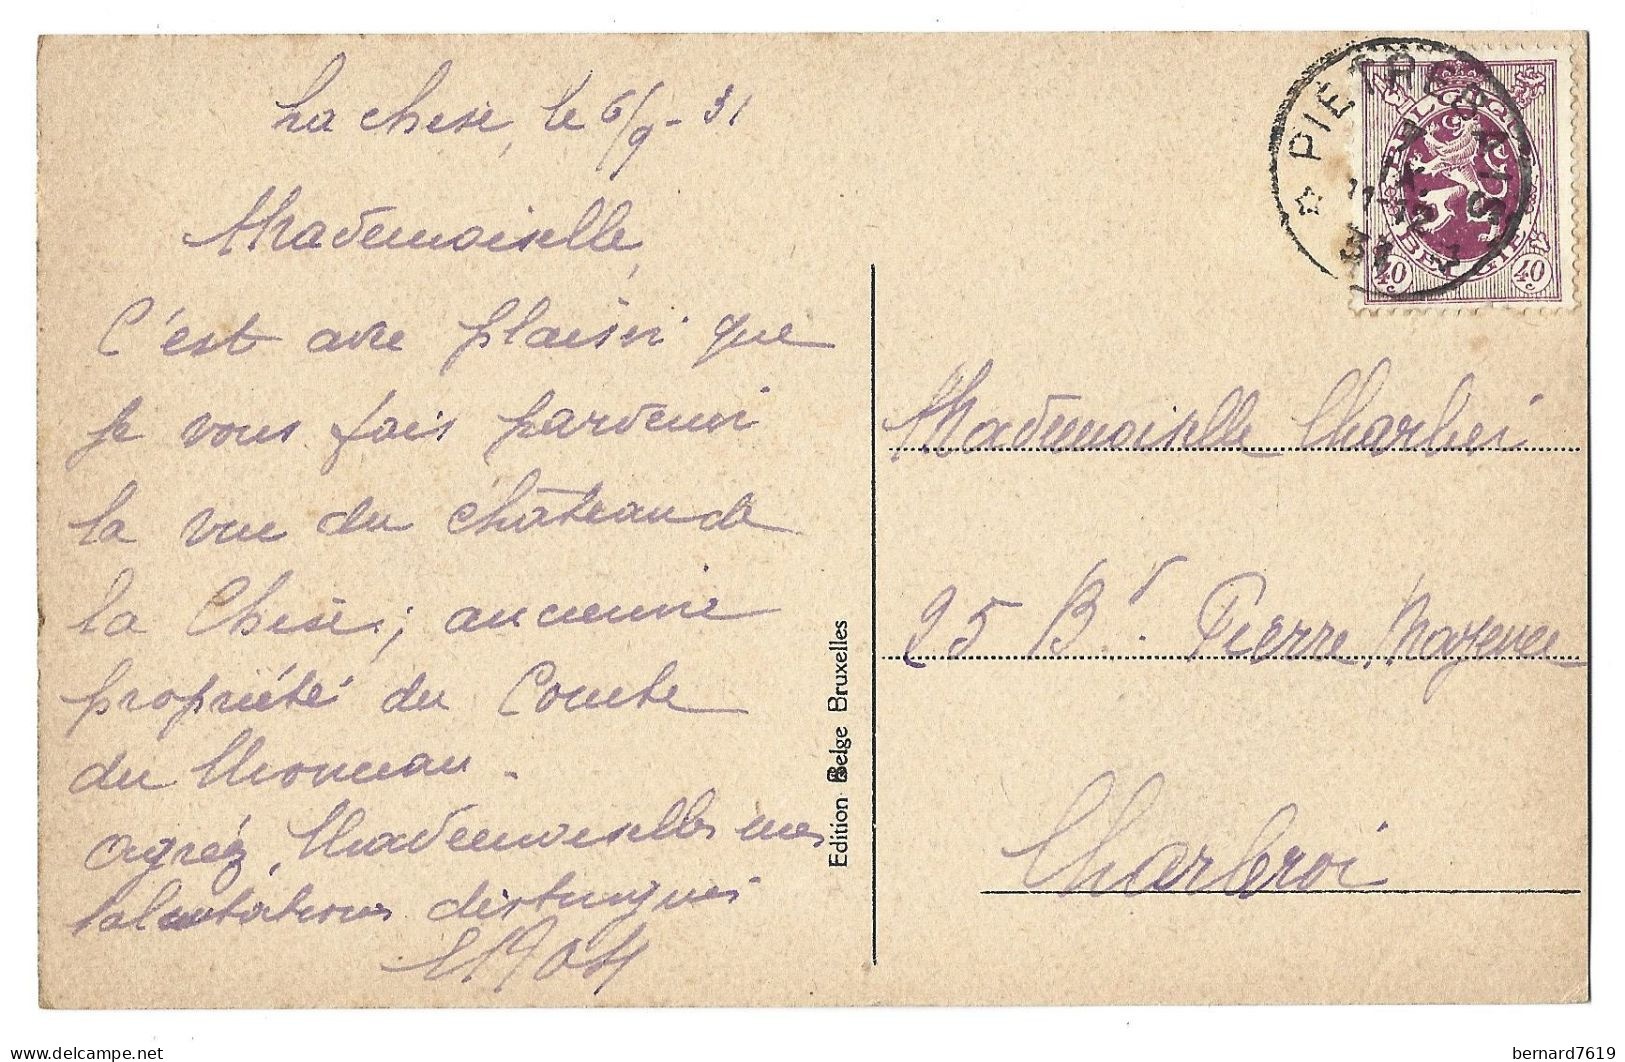 La chise, le 6/9 - 31
Mademoiselle,
C'est avec plaisir que
je vous fais parvenir
la vue du château de
la Chise; ancienne
propriété du Comte
du Monceau.
agréez, Mademoiselle mes
salutations distingués
PIETREBAIS
7
IX
11-12
31
BELGIQUE
BELGIË
40 c
40 c
Mademoiselle Charlier
25 Bd. Pierre Mayence
Charleroi
Edition Belge Bruxelles
delcampe.net
bernard7619